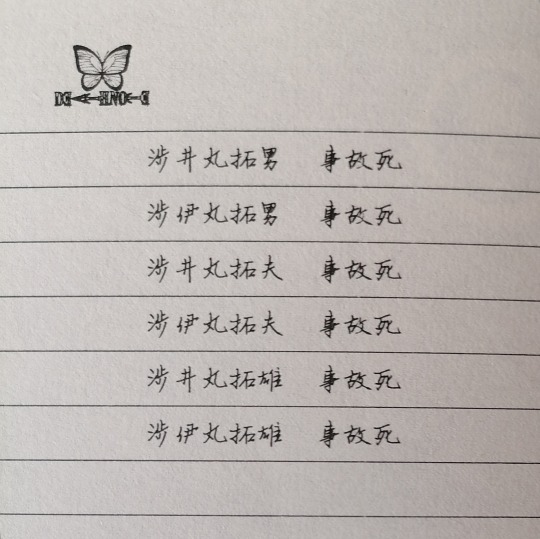 涉井丸拓男 事故死
涉伊丸拓男 事故死
涉井丸拓夫 事故死
涉伊丸拓夫 事故死
涉井丸拓雄 事故死
涉伊丸拓雄 事故死